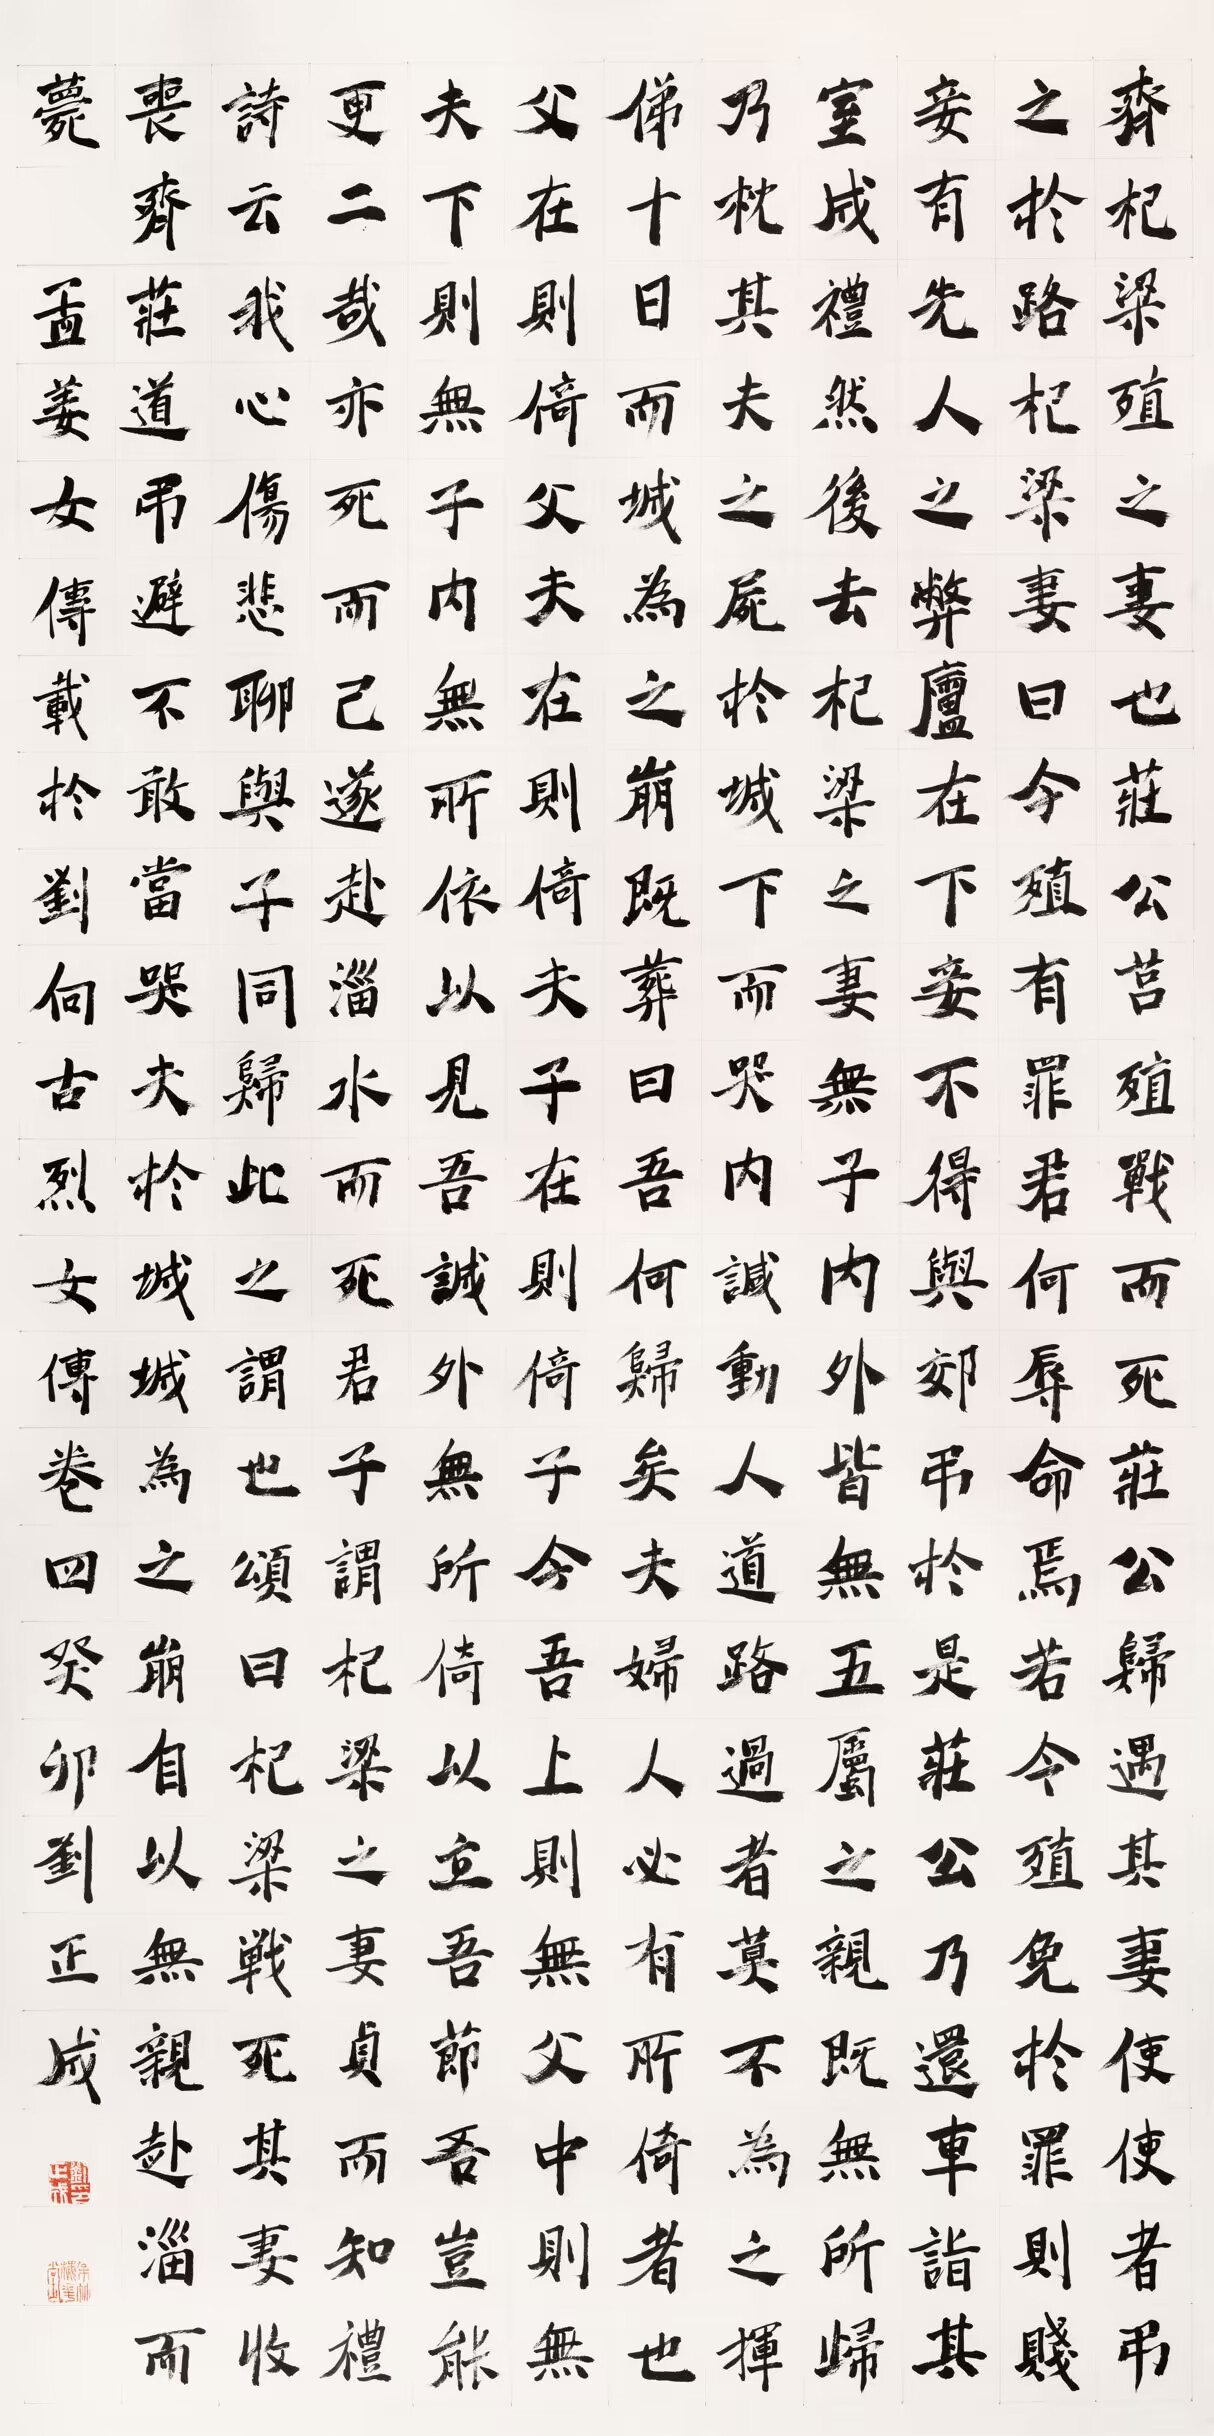 齊杞梁殖之妻也莊公莒殖戰而死莊公歸遇其妻使使者弔
之於路杞梁妻曰今殖有罪君何辱命焉若今殖免於罪則賤
妾有先人之弊廬在下妾不得與郊弔於是莊公乃還車詣其
室成禮然後去杞梁之妻無子內外皆無五屬之親既無所歸
乃枕其夫之屍於城下而哭內諴動人道路過者莫不為之揮
俤十日而城為之崩既葬曰吾何歸矣夫婦人必有所倚者也
父在則倚父夫在則倚夫子在則倚子今吾上則無父中則無
夫下則無子內無所依以見吾誠外無所倚以立吾節吾豈能
更二哉亦死而己遂赴淄水而死君子謂杞梁之妻貞而知禮
詩云我心傷悲聊與子同歸此之謂也頌曰杞梁戰死其妻收
喪齊莊道弔避不敢當哭夫於城城為之崩自以無親赴淄而
薨 孟姜女傳載於劉向古烈女傳卷四癸卯劉正成